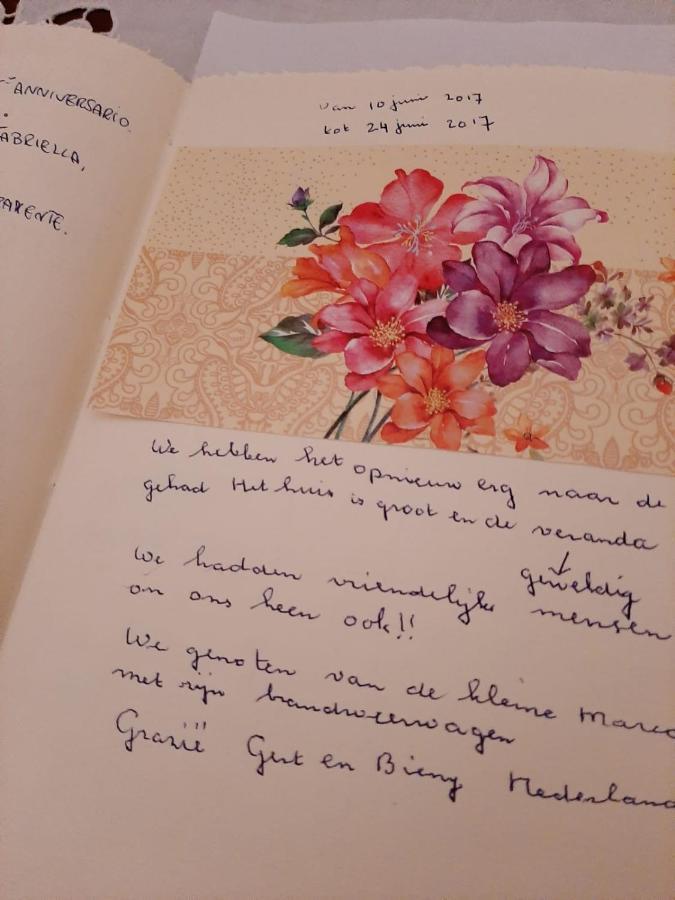 ANNIVERSARIO.
GABRIELLA,
van 10 juni 2017
tot 24 juni 2017
We hebben het opnieuw erg naar de
gehad Het huis is groot en de veranda
geweldig
We hadden vriendelijke mensen
om ons heen ook!!
We genoten van de kleine Marco
met zijn brandweerwagen
Grazië Gert en Bieny Nederland